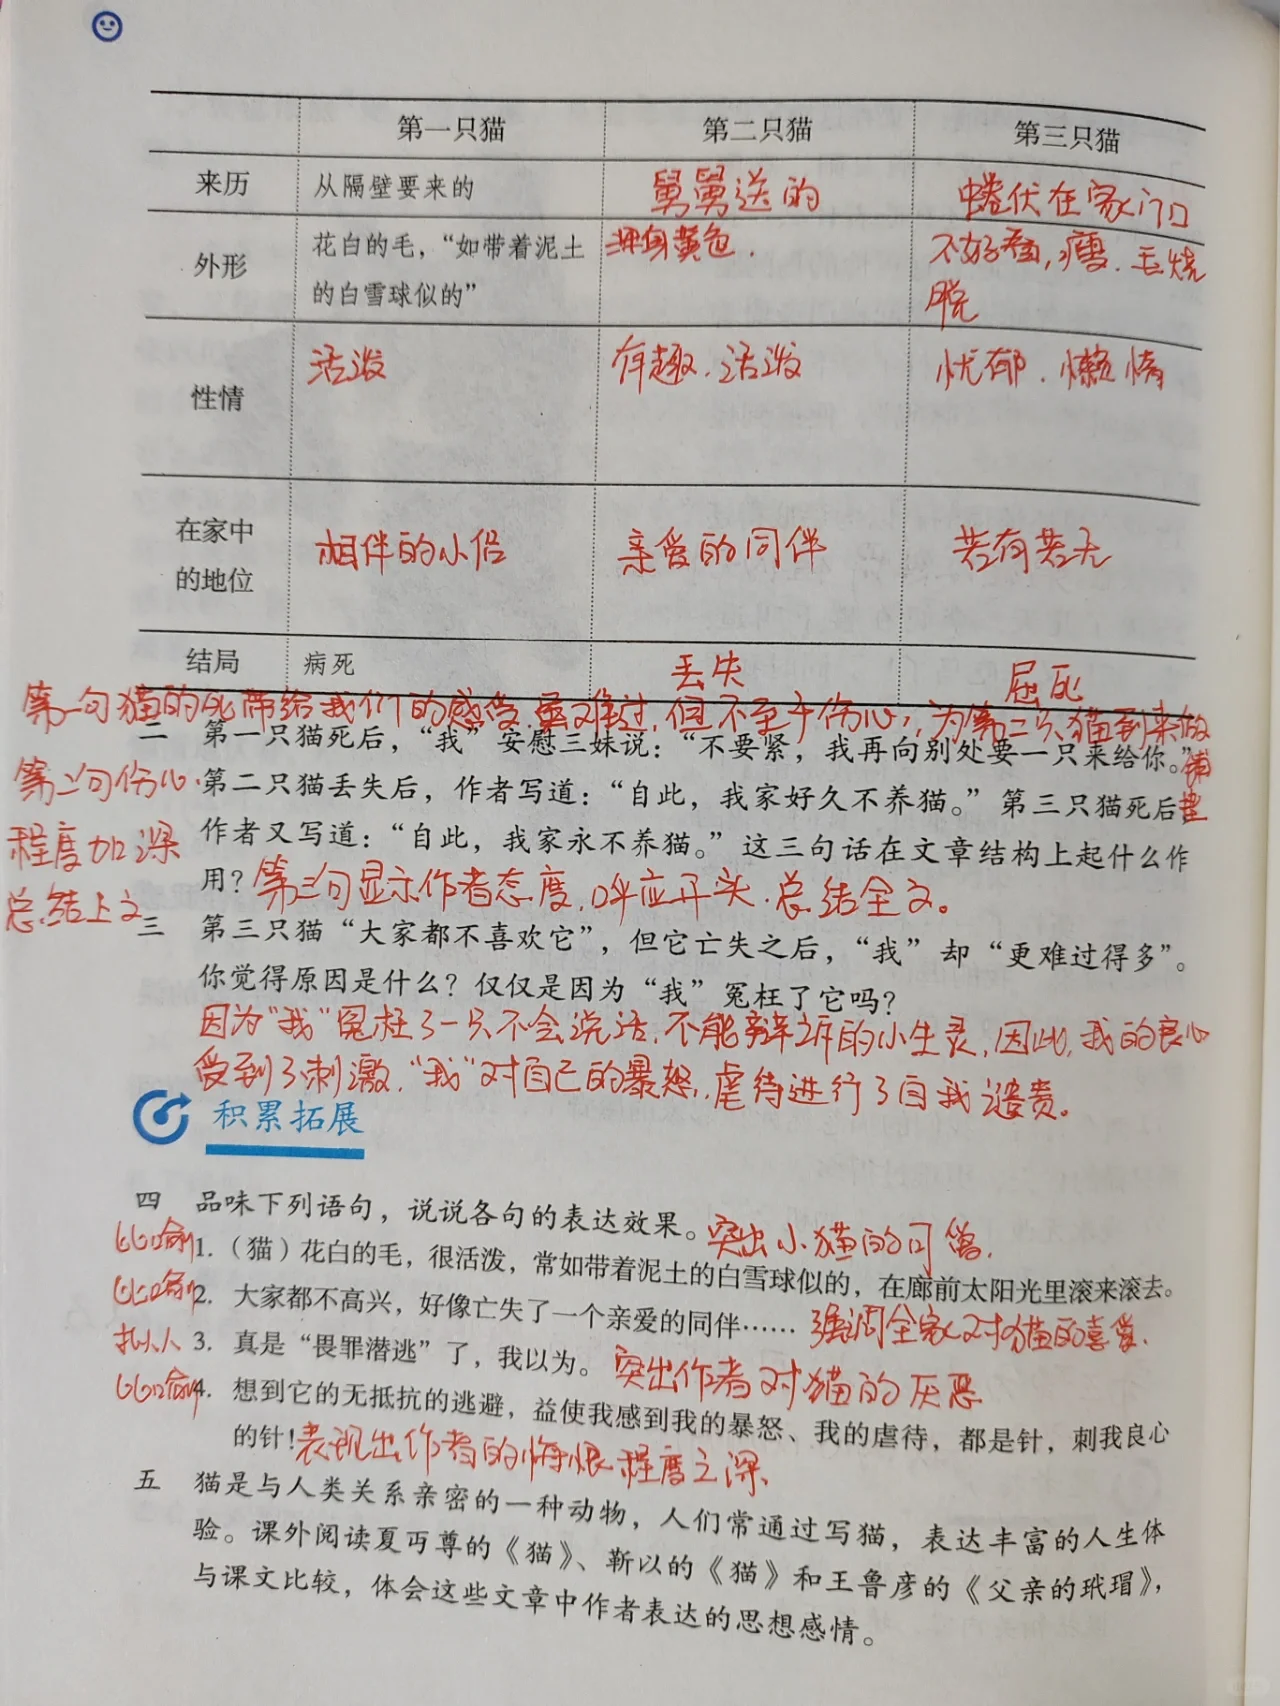 第一只猫 第二只猫 第三只猫
来历 从隔壁要来的 舅舅送的 蜷伏在家门口
外形 花白的毛，“如带着泥土的白雪球似的” 浑身黄色. 不好看，瘦.毛烧脱
性情 活泼 有趣.活泼 忧郁.懒惰
在家中的地位 相伴的小侣 亲爱的同伴 若有若无
结局 病死 丢失 屈死
第一句猫的死带给我们的感受.虽难过,但不至于伤心,为第二只猫到来做
铺垫
二 第一只猫死后，“我”安慰三妹说：“不要紧，我再向别处要一只来给你。”
第二只猫丢失后，作者写道：“自此，我家好久不养猫。”第三只猫死后
作者又写道：“自此，我家永不养猫。”这三句话在文章结构上起什么作
用？第三句显示作者态度.呼应开头.总结全文。
第二句伤心.
程度加深
总结上文
三 第三只猫“大家都不喜欢它”，但它亡失之后，“我”却“更难过得多”。
你觉得原因是什么？仅仅是因为“我”冤枉了它吗？
因为“我”冤枉了一只不会说话.不能辩诉的小生灵,因此,我的良心
受到了刺激.“我”对自己的暴怒.虐待进行了自我谴责。
积累拓展
四 品味下列语句，说说各句的表达效果。突出小猫的可爱.
比喻 1.（猫）花白的毛，很活泼，常如带着泥土的白雪球似的，在廊前太阳光里滚来滚去。
比喻 2. 大家都不高兴，好像亡失了一个亲爱的同伴…… 强调全家人对猫的喜爱.
拟人 3. 真是“畏罪潜逃”了，我以为。突出作者对猫的厌恶
比喻 4. 想到它的无抵抗的逃避，益使我感到我的暴怒、我的虐待，都是针，刺我良心
的针！表现出作者的悔恨程度之深.
五 猫是与人类关系亲密的一种动物，人们常通过写猫，表达丰富的人生体
验。课外阅读夏丏尊的《猫》、靳以的《猫》和王鲁彦的《父亲的玳瑁》，
与课文比较，体会这些文章中作者表达的思想感情。